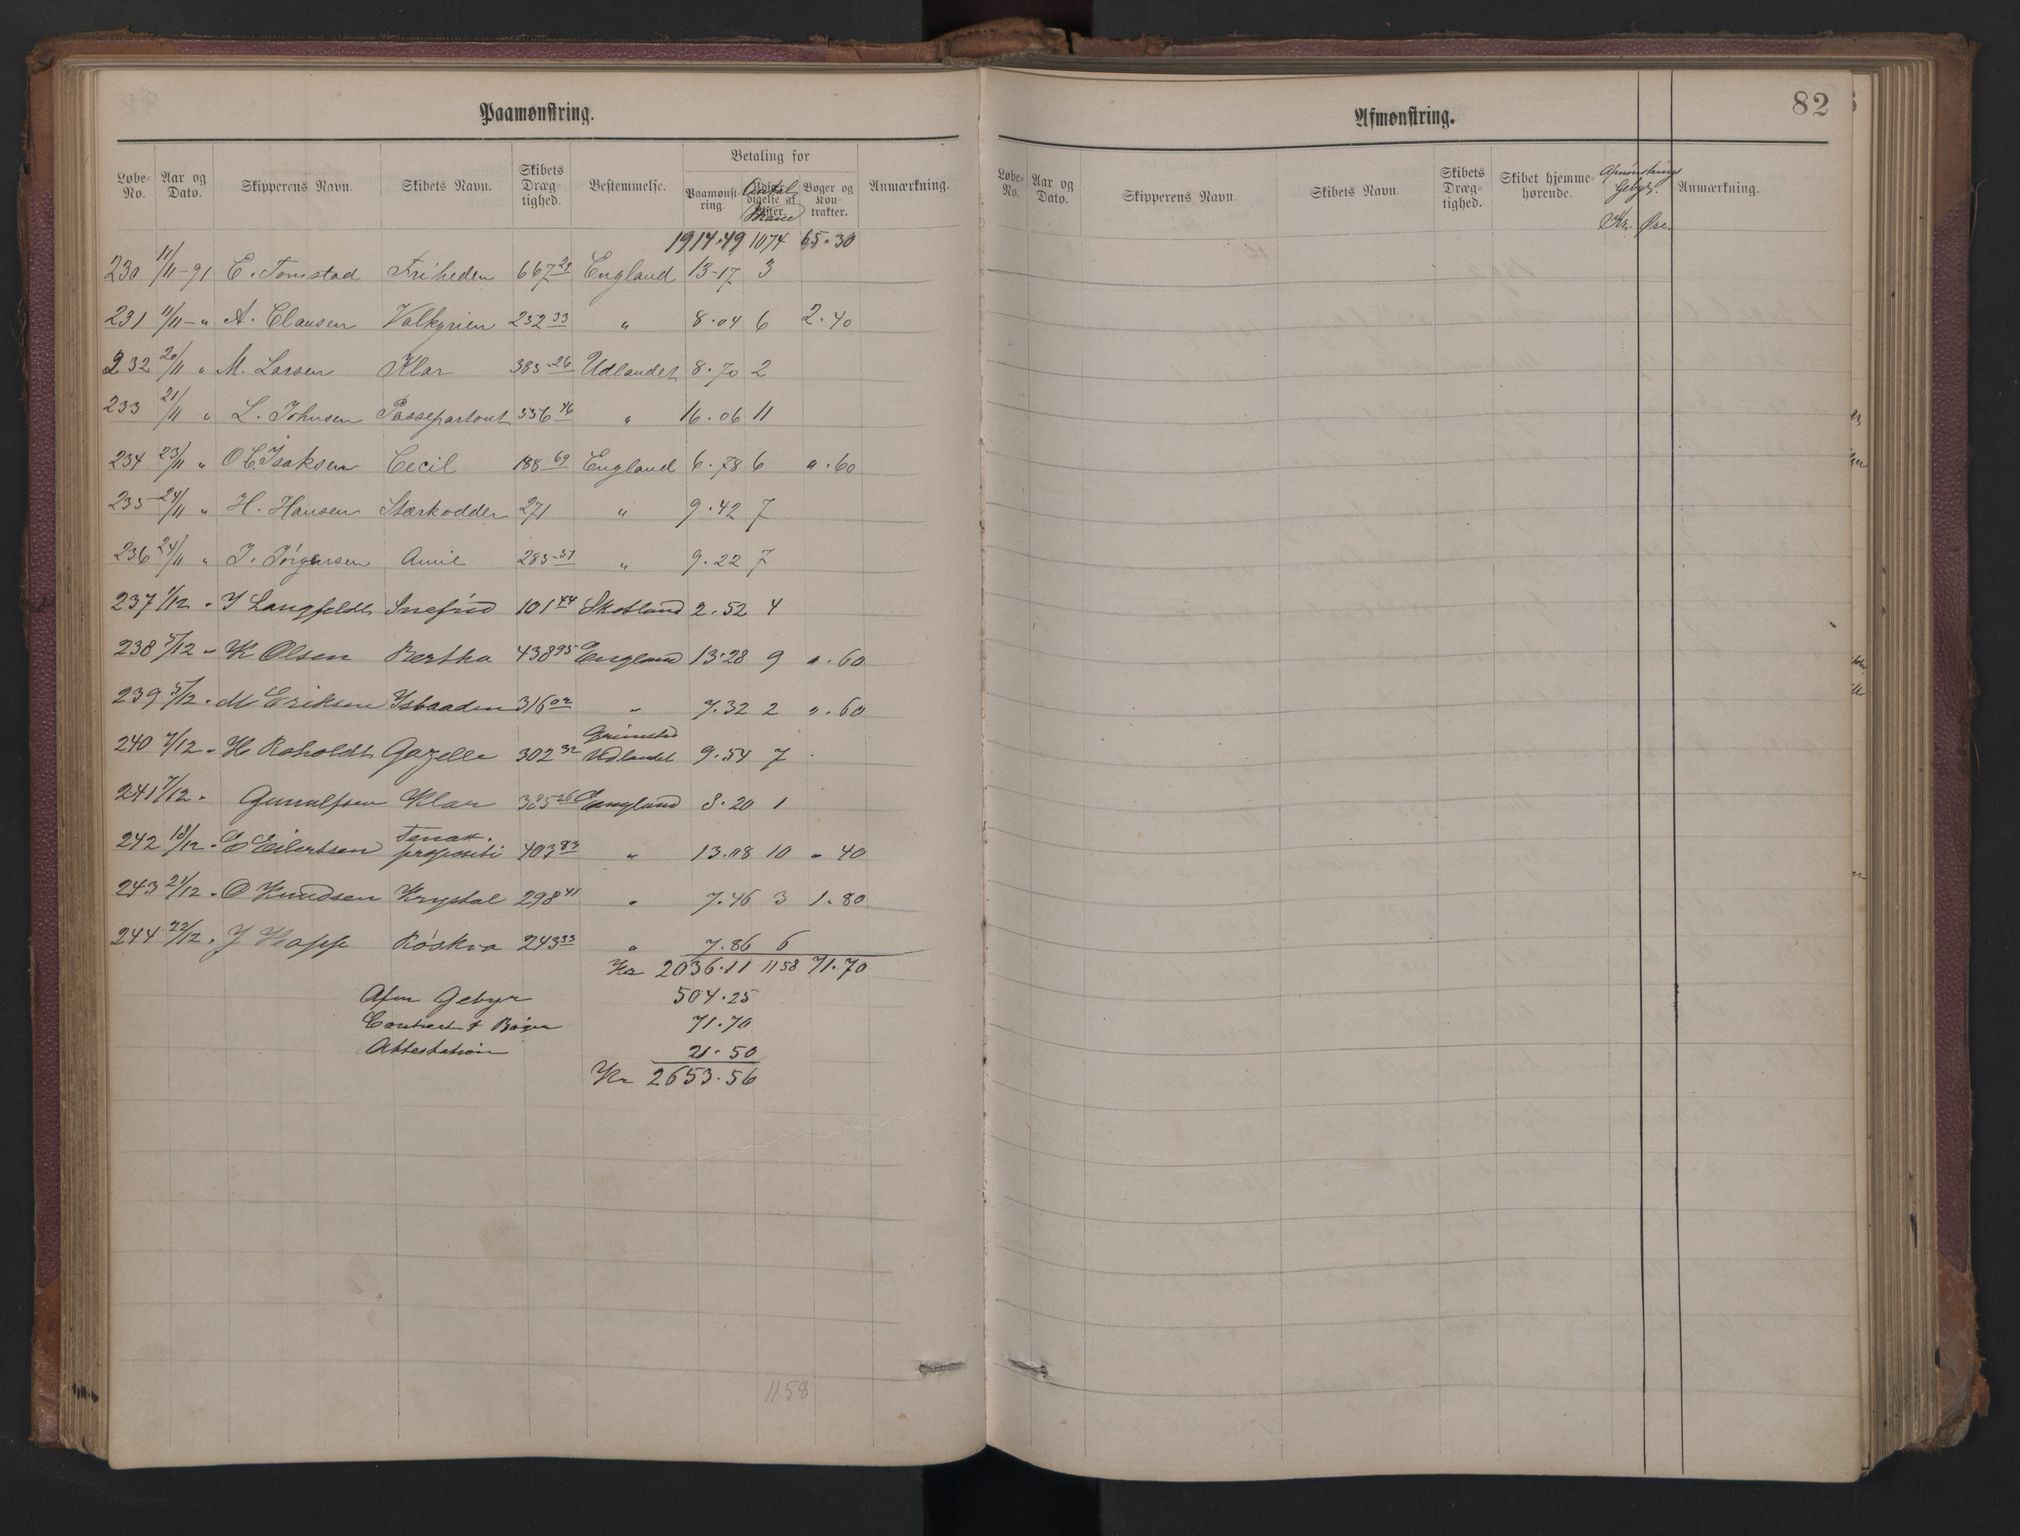 Paamønstring.
Løbe-No. Aar og Dato. Skipperens Navn. Skibets Navn. Skibets Dræg-tighed. Bestemmelse. Betaling for Paamønst-ring. Antal Mand Bøger og Kon-trakter. Anmærkning.
1914.49 1074 65.30
230 11/11-91 E. Tomstad Friheden 667 29 England 13-17 3
231 11/11 - " A. Clausen Valkyrien 252 33 " 8.04 6 2.40
232 20/11 " M. Larsen Klar 385-26 Udlandet 8.70 2
233 21/11 " L. Johnsen Passepartout 556 46 " 16.06 11
234 23/11 " O C. Isaksen Cecil 188 69 England 6.78 6 " .60
235 24/11 " H. Hansen Stærkodder 271 " 9.42 7
236 24/11 " J. Jørgensen Amil 285-51 " 9.22 7
237 1/12 " J Langfeldt Snefrid 101 44 Skotland 2.52 4
238 5/12 " K Olsen Bertha 438 95 England 13.28 9 " .60
239 5/12 " M Eriksen Isbaaden 316 02 " 7.32 2 " .60
240 7/12 " H Roholdt Gazelle 302 32 Grimstad Udlandet 9.54 7
241 7/12 " Gunulfsen Klar 385 26 England 8.20 1
242 18/12 " E Eilertsen Tenax propositi 403 83 " 13.08 10 " 40
243 21/12 " O Knudsen Krystal 298 41 " 7.46 3 1.80
244 22/12 " J Happ Røskva 243 33 " 7.86 6
Kr 2036.11 1158 71.70
Afm Gebyr 504.25
Contract & Bøger 71.70
Attestation 21.50
Kr 2653.56
1158
Afmønstring.
82
Løbe-No. Aar og Dato. Skipperens Navn. Skibets Navn. Skibets Dræg-tighed. Skibet hjemme-hørende. Afmønstrings Gebyr. Kr. Øre. Anmærkning.